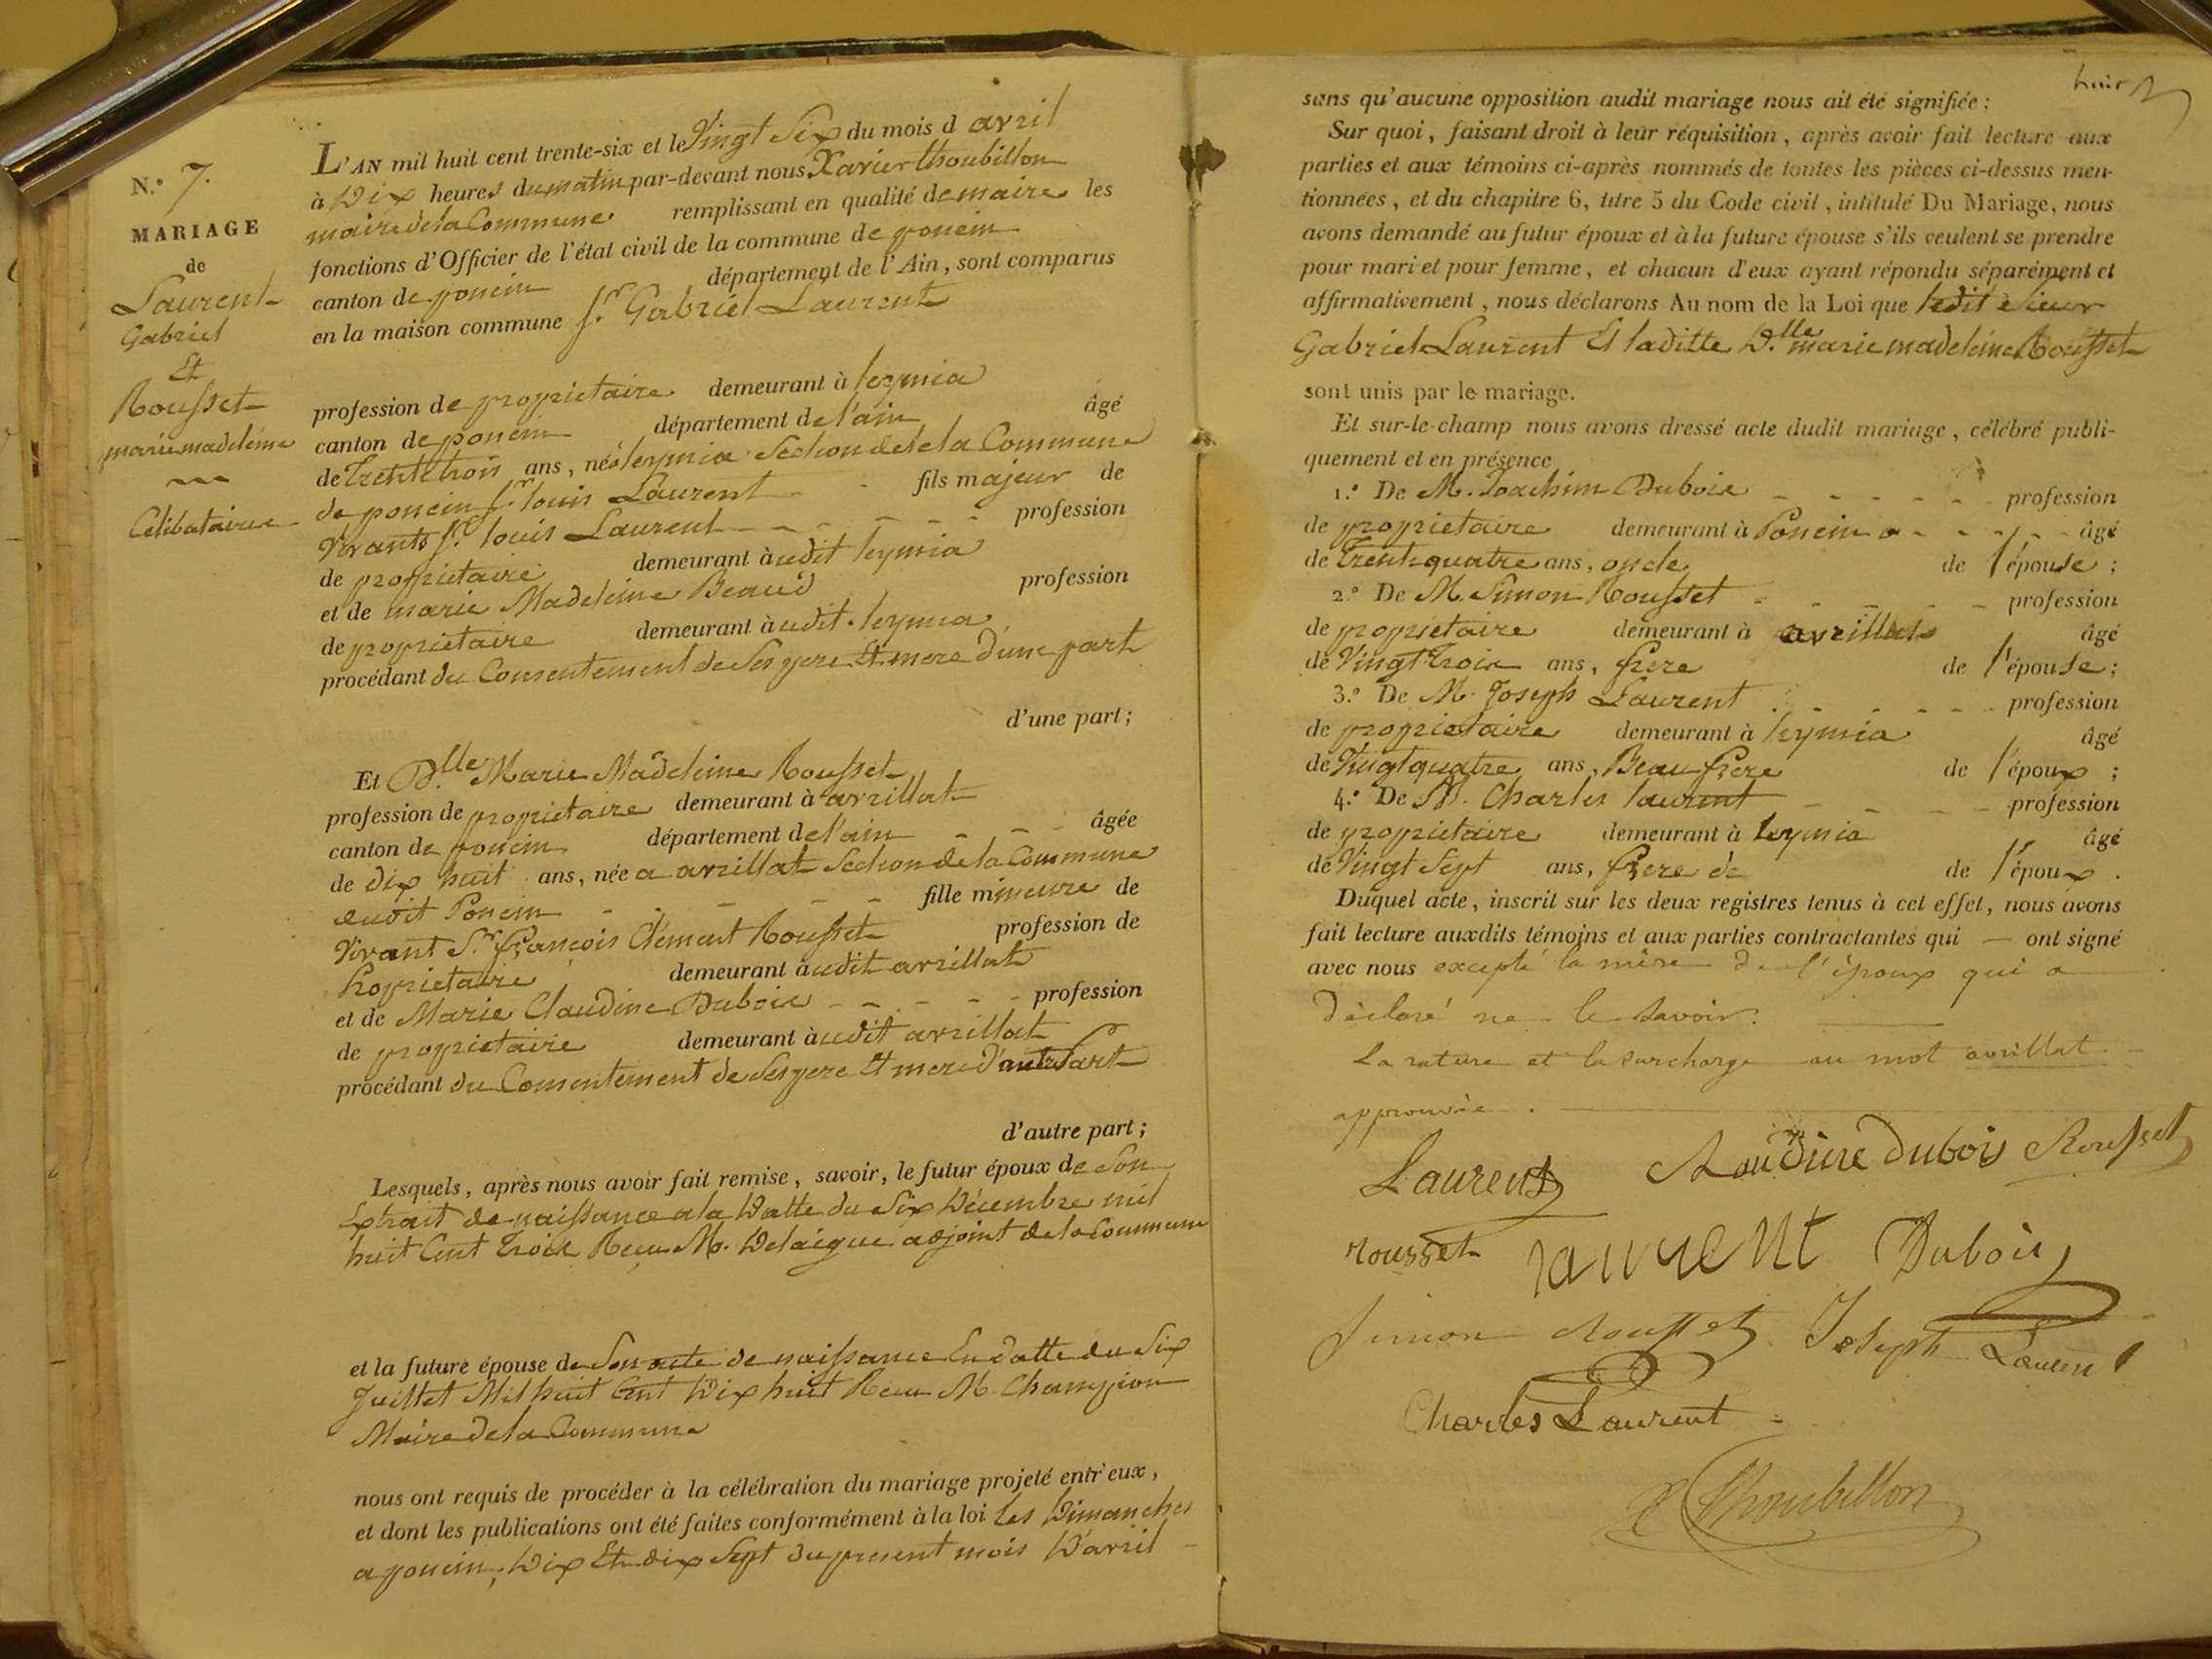 N.° 7.
MARIAGE
de
Laurent
Gabriel
Et
Rousset
marie madeleine
Celibataires
L'AN mil huit cent trente-six et le Vingt Six du mois d avril
à Dix heures du matin par-devant nous Xavier thoubillon
maire de la Commune remplissant en qualité de maire les
fonctions d'Officier de l'état civil de la commune de poncin
canton de poncin département de l'Ain, sont comparus
en la maison commune S.r Gabriel Laurent
profession de proprietaire demeurant à leymia
canton de poncin département de l'ain âgé
de Trente trois ans, né à leymia Section de la Commune
de poncin S.r louis Laurent fils majeur de
Vivants S.r louis Laurent profession
de proprietaire demeurant à udit leymia
et de marie Madeleine Beaud profession
de proprietaire demeurant à udit leymia
procédant du Consentement de Ses pere Et mere d'une part
d'une part;
Et D.lle Marie Madeleine Rousset
profession de proprietaire demeurant à avrillat
canton de poncin département de l'ain âgée
de dix huit ans, née a avrillat Section de la Commune
dudit Poncin fille mineure de
Vivant S.r françois Clément Rousset profession de
Proprietaire demeurant à udit avrillat
et de Marie Claudine Dubois profession
de proprietaire demeurant à udit avrillat
procédant du Consentement de Ses pere Et mere d'autre Part
d'autre part;
Lesquels, après nous avoir fait remise, savoir, le futur époux de Son
Extrait de naissance a la Datte du Six Décembre mil
huit Cent Trois Recu M. Delaigue adjoint de la Commune
et la future épouse de Son acte de naissance En datte du Six
Juillet Mil huit Cent Dix huit Recu M. Champion
Maire de la Commune
nous ont requis de procéder à la célébration du mariage projeté entr'eux,
et dont les publications ont été faites conformément à la loi les Dimanches
a poncin, Dix Et dix Sept du present mois D'avril
huit
sans qu'aucune opposition audit mariage nous ait été signifiée;
Sur quoi, faisant droit à leur réquisition, après avoir fait lecture aux
parties et aux témoins ci-après nommés de toutes les pièces ci-dessus men-
tionnées, et du chapitre 6, titre 5 du Code civil, intitulé Du Mariage, nous
avons demandé au futur époux et à la future épouse s'ils veulent se prendre
pour mari et pour femme, et chacun d'eux ayant répondu séparément et
affirmativement, nous déclarons Au nom de la Loi que ledit Sieur
Gabriel Laurent Et laditte D.lle marie madeleine Rousset
sont unis par le mariage.
Et sur-le-champ nous avons dressé acte dudit mariage, célébré publi-
quement et en présence
1.° De M. Joachim Dubois profession
de proprietaire demeurant à Poncin âgé
de Trente quatre ans, oncle de l'épouse;
2.° De M. Simon Rousset profession
de proprietaire demeurant à avrillat âgé
de Vingt trois ans, frere de l'épouse;
3.° De M. Joseph Laurent profession
de proprietaire demeurant à leymia âgé
de Vingt quatre ans, Beau frere de l'époux;
4.° De M. Charles laurent profession
de proprietaire demeurant à leymia âgé
de Vingt Sept ans, frere de de l'époux.
Duquel acte, inscrit sur les deux registres tenus à cet effet, nous avons
fait lecture auxdits témoins et aux parties contractantes qui — ont signé
avec nous excepté la mère de l'époux qui a
déclaré ne le savoir.
La rature et la surcharge au mot avrillat
approuvée.
Laurent Claudine Dubois Rousset
rousset laurent Dubois
Simon Rousset Joseph Laurent
Charles Laurent
X Thoubillon